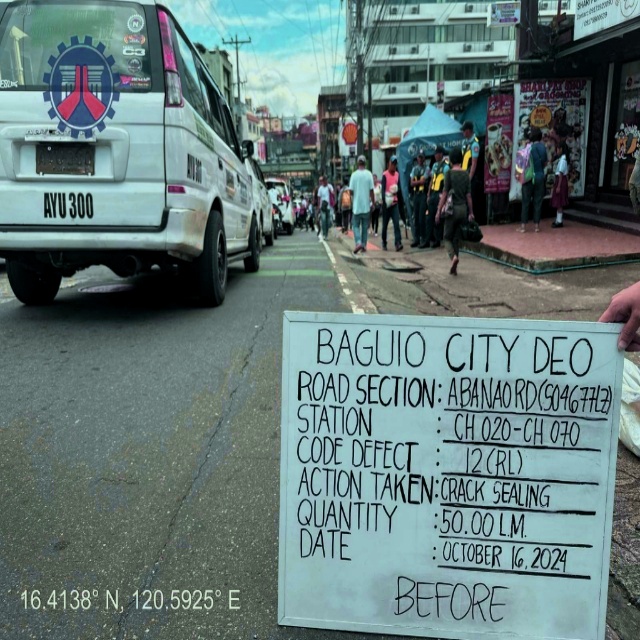 AYU 300
BAGUIO CITY DEO
ROAD SECTION: ABANAO RD(S04677LZ)
STATION : CH 020-CH 070
CODE DEFECT : 12 (RL)
ACTION TAKEN: CRACK SEALING
QUANTITY : 50.00 L.M.
DATE : OCTOBER 16, 2024
BEFORE
16.4138° N, 120.5925° E